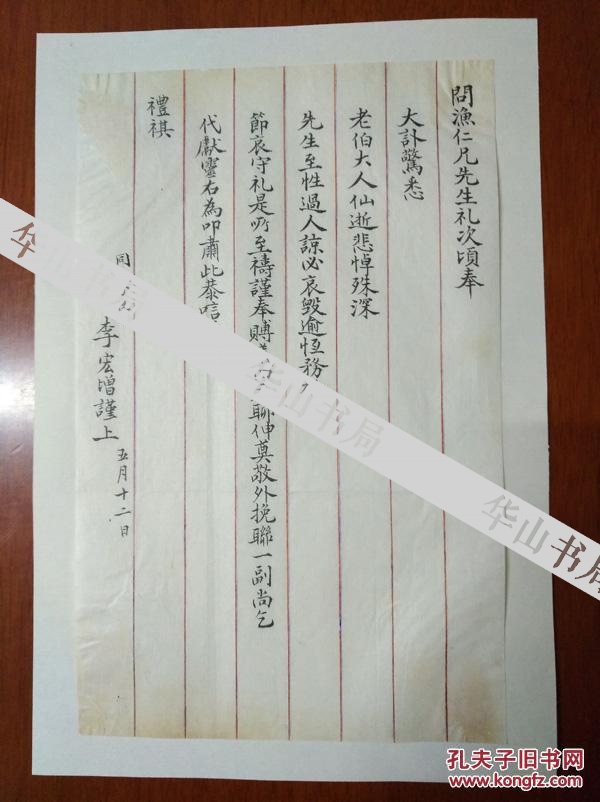 問漁仁兄先生礼次頃奉
大訃驚悉
老伯大人仙逝悲悼殊深
先生至性過人諒必哀毀逾恆務
節哀守礼是所至禱謹奉賻聊伸奠敬外挽聯一副尚乞
代獻靈右為叩肅此恭唁
禮祺
李宏增謹上
五月十二日
华山书局
华山书局
华山书局
孔夫子旧书网
www.kongfz.com